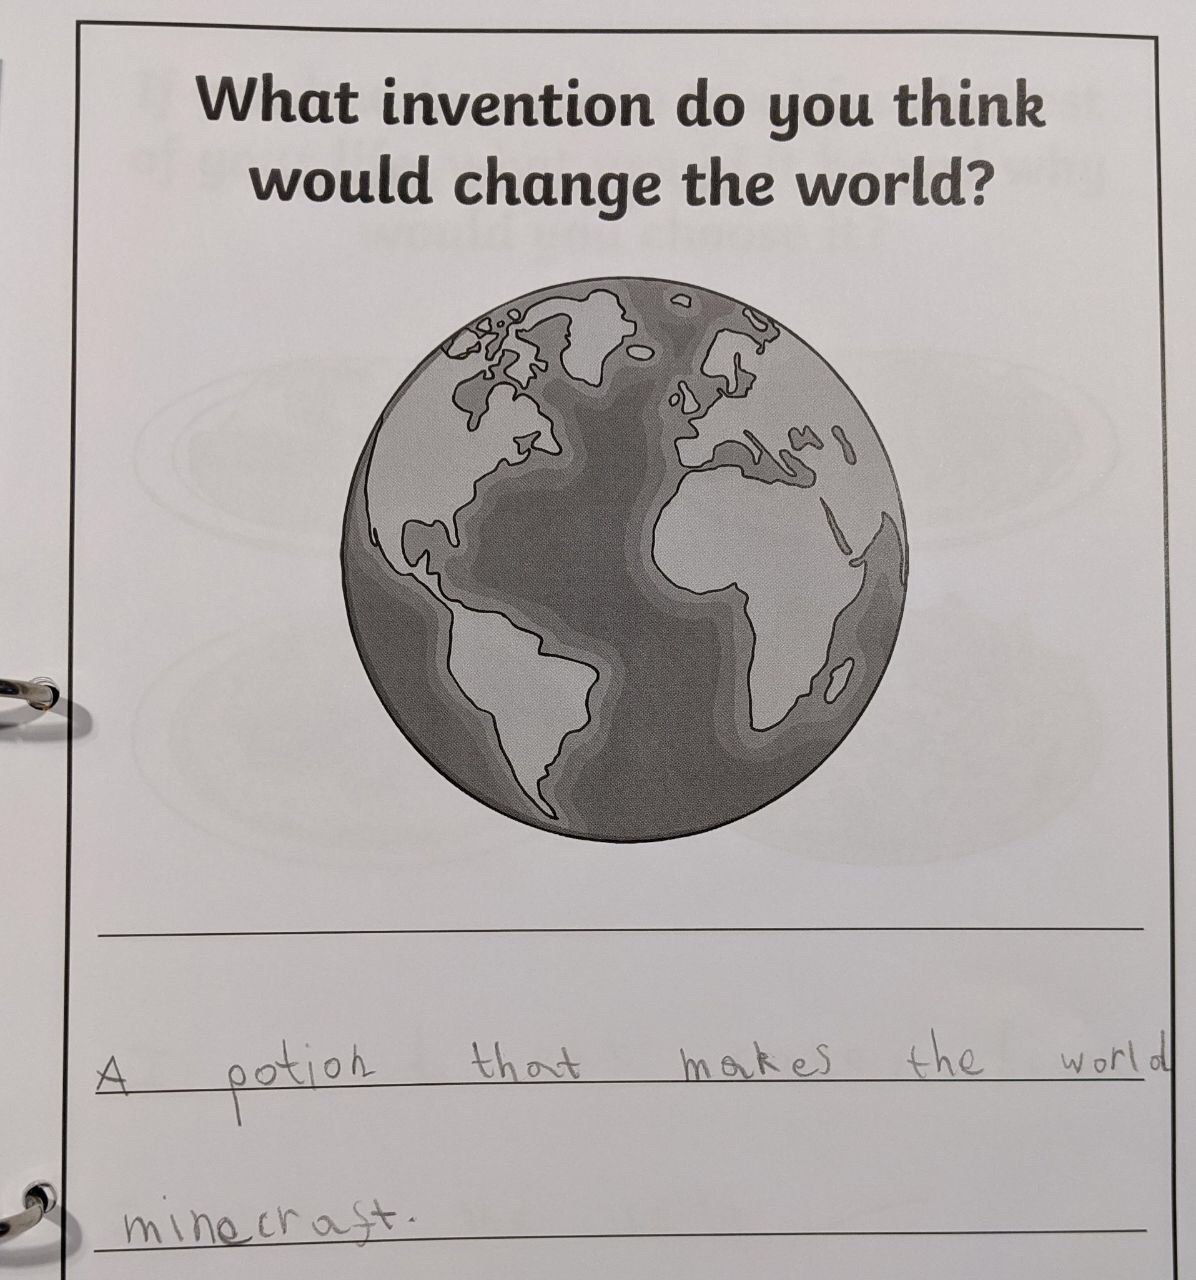 What invention do you think
would change the world?
A potion that makes the world
minecraft.